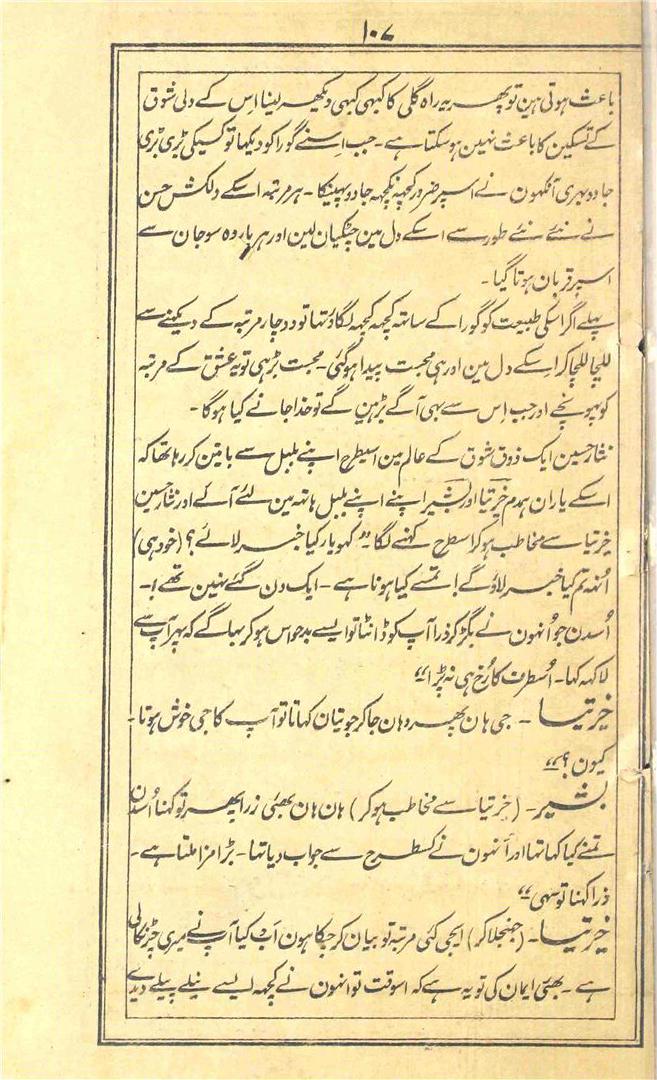 ۱۰۷
باعث ہوتی ہین تو پھر یہ راہ گلی کا کبہی کبہی دیکھ لینا اِس کے دلی شوق
کے تسکین کا باعث نہین ہوسکتا ہے۔ جب اسنے گورا کو دیکہا تو کسیکی بڑی بڑی
جادو بہری آنکہون نے اسپر ضرور کچہہ نکچہہ جادو پہینکا۔ ہر مرتبہ اسکے دلکش حسن
نے نئے نئے طور سے اسکے دل مین چٹکیان لین اور ہر بار وہ سو جان سے
اسپر قربان ہوتا گیا۔
پہلے اگر اسکی طبیعت کو گورا کے ساتہہ کچہہ کچہہ لگاؤ تہا تو دو چار مرتبہ کے دیکہنے سے
للچا للچا کر اسکے دل مین اور ہی محبت پیدا ہوگئی۔ محبت بڑہی تو یہ عشق کے مرتبہ
کو پہونچے اور جب اِس سے بہی آگے بڑہین گے تو خدا جانے کیا ہوگا۔
نثار حسین ایک ذوق شوق کے عالم مین اسیطرح اپنے بلبل سے باتین کر رہا تہا کہ
اسکے یاران ہمدم خیرتیا اور بشیر اپنے اپنے بلبل ہاتہہ مین لئے آئے اور نثار حسین
خیرتیا سے مخاطب ہوکر اسطرح کہنے لگا ”کہو یار کیا خبر لائے؟ (خود ہی)
اُنہہ تم کیا خبر لاؤگے! تمسے کیا ہونا ہے۔ ایک دن گئے نہین تہے!۔
اُسدن جو اُنہون نے بگڑ کر ذرا آپ کو ڈانٹا تو ایسے بدحواس ہوکر بہاگے کہ پہر آپ سے
لاکہہ کہا۔ اُسطرف کا رُخ ہی نہ پڑا“
خیرتیا۔ جی ہان پھر وہان جاکر جوتیان کہاتا تو آپ کا جی خوش ہوتا۔
کیون؟“
بشیر۔ (خیرتیا سے مخاطب ہوکر) ہان ہان بھئی زرا پھر تو کہنا اُسدن
تمنے کیا کہا تہا اور اُنہون نے کسطرح سے جواب دیا تہا۔ بڑا مزا ملتا ہے۔
ذرا کہنا تو سہی“
خیرتیا۔ (جہنجلا کر) ابجی کئی مرتبہ تو بیان کر چکا ہون اَب کیا آپ نے میری چڑ نکالی
ہے۔ بھئی ایمان کی تو یہ ہے کہ اسوقت تو انہون نے کچہہ ایسے نیلے پیلے دیدے